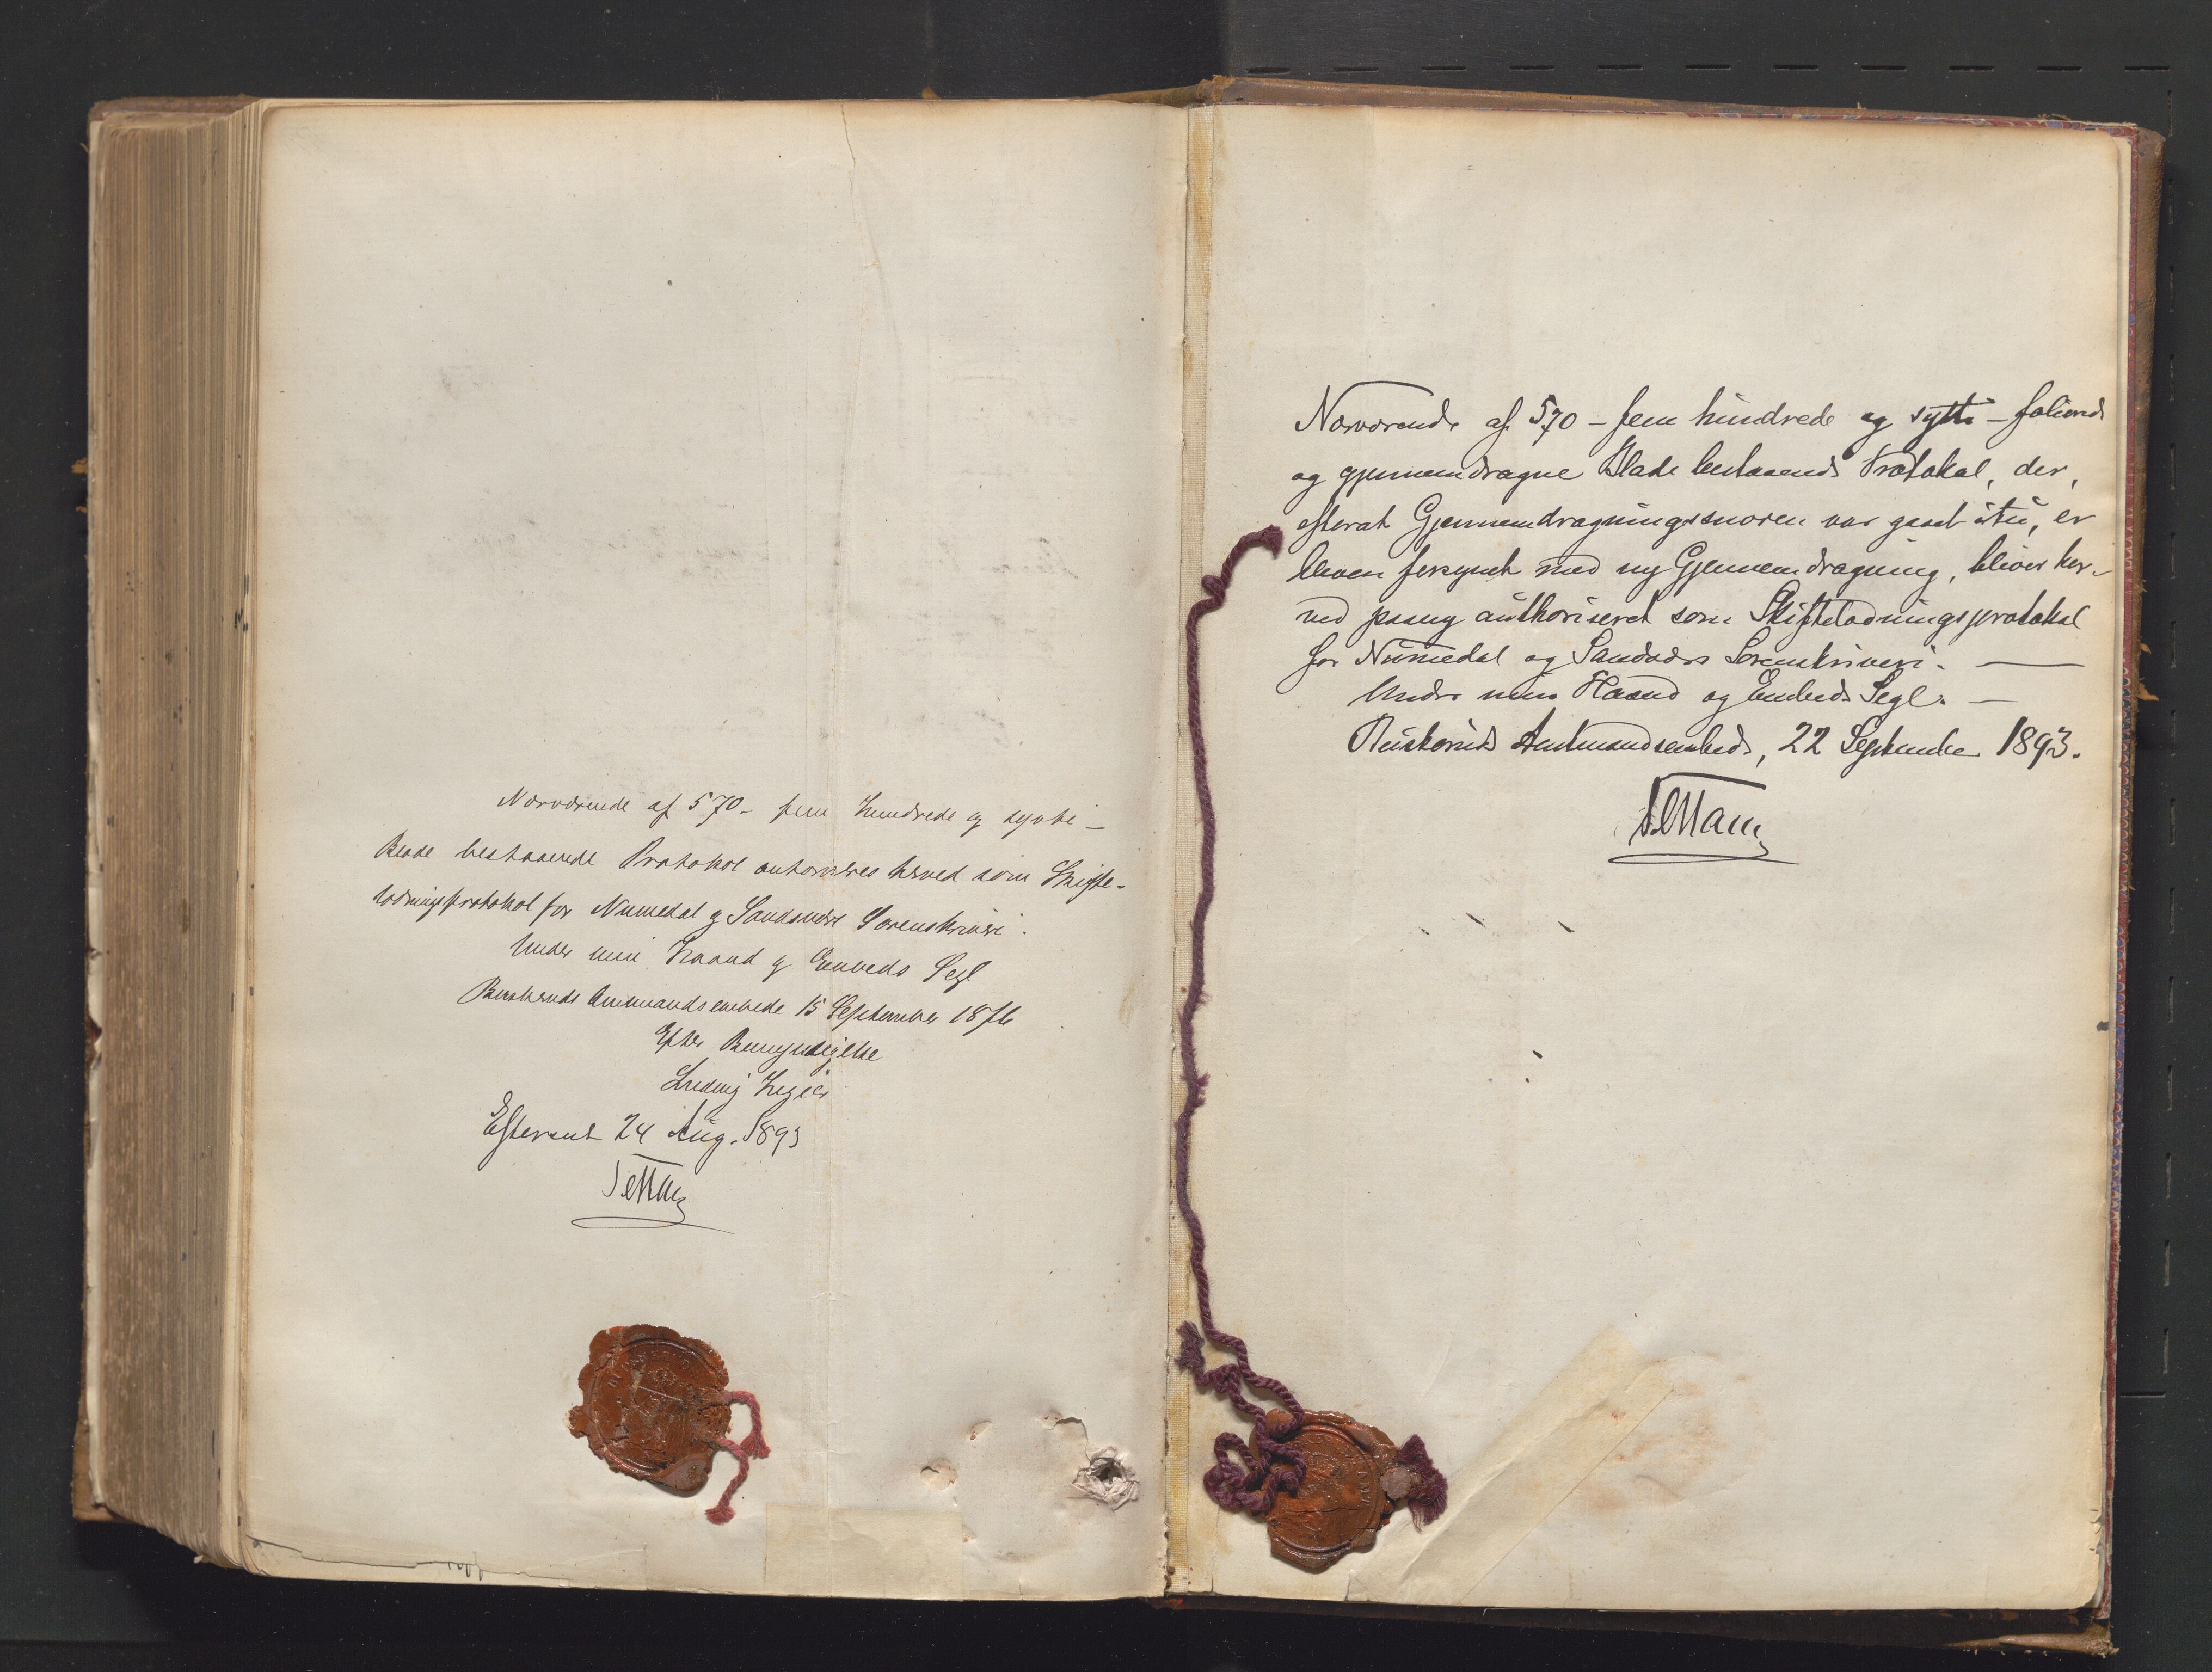 Nærværende af 570 - fem hundrede og sytti -
Blade bestaaende Protokol autoriseres herved som Skifte-
lodningsprotokol for Numedal og Sandsvær Sorenskriveri.
Under min Haand og Embeds Segl
Buskeruds Amtmandsembede 15 September 1876
Efter Bemyndigelse
Ludvig
Efterseet 24 Aug. 1893
Nærværende af 570 - fem hundrede og sytti - folierede
og gjennemdragne Blade bestaaende Protokol, der,
efterat Gjennemdragningssnoren var gaaet itu, er
bleven forsynet med ny Gjennemdragning, bliver her-
ved paany authoriseret som Skiftelodningsprotokol
for Numedal og Sandsvær Sorenskriveri. —
Under min Haand og Embeds Segl. —
Buskeruds Amtmandsembede, 22 September 1893.